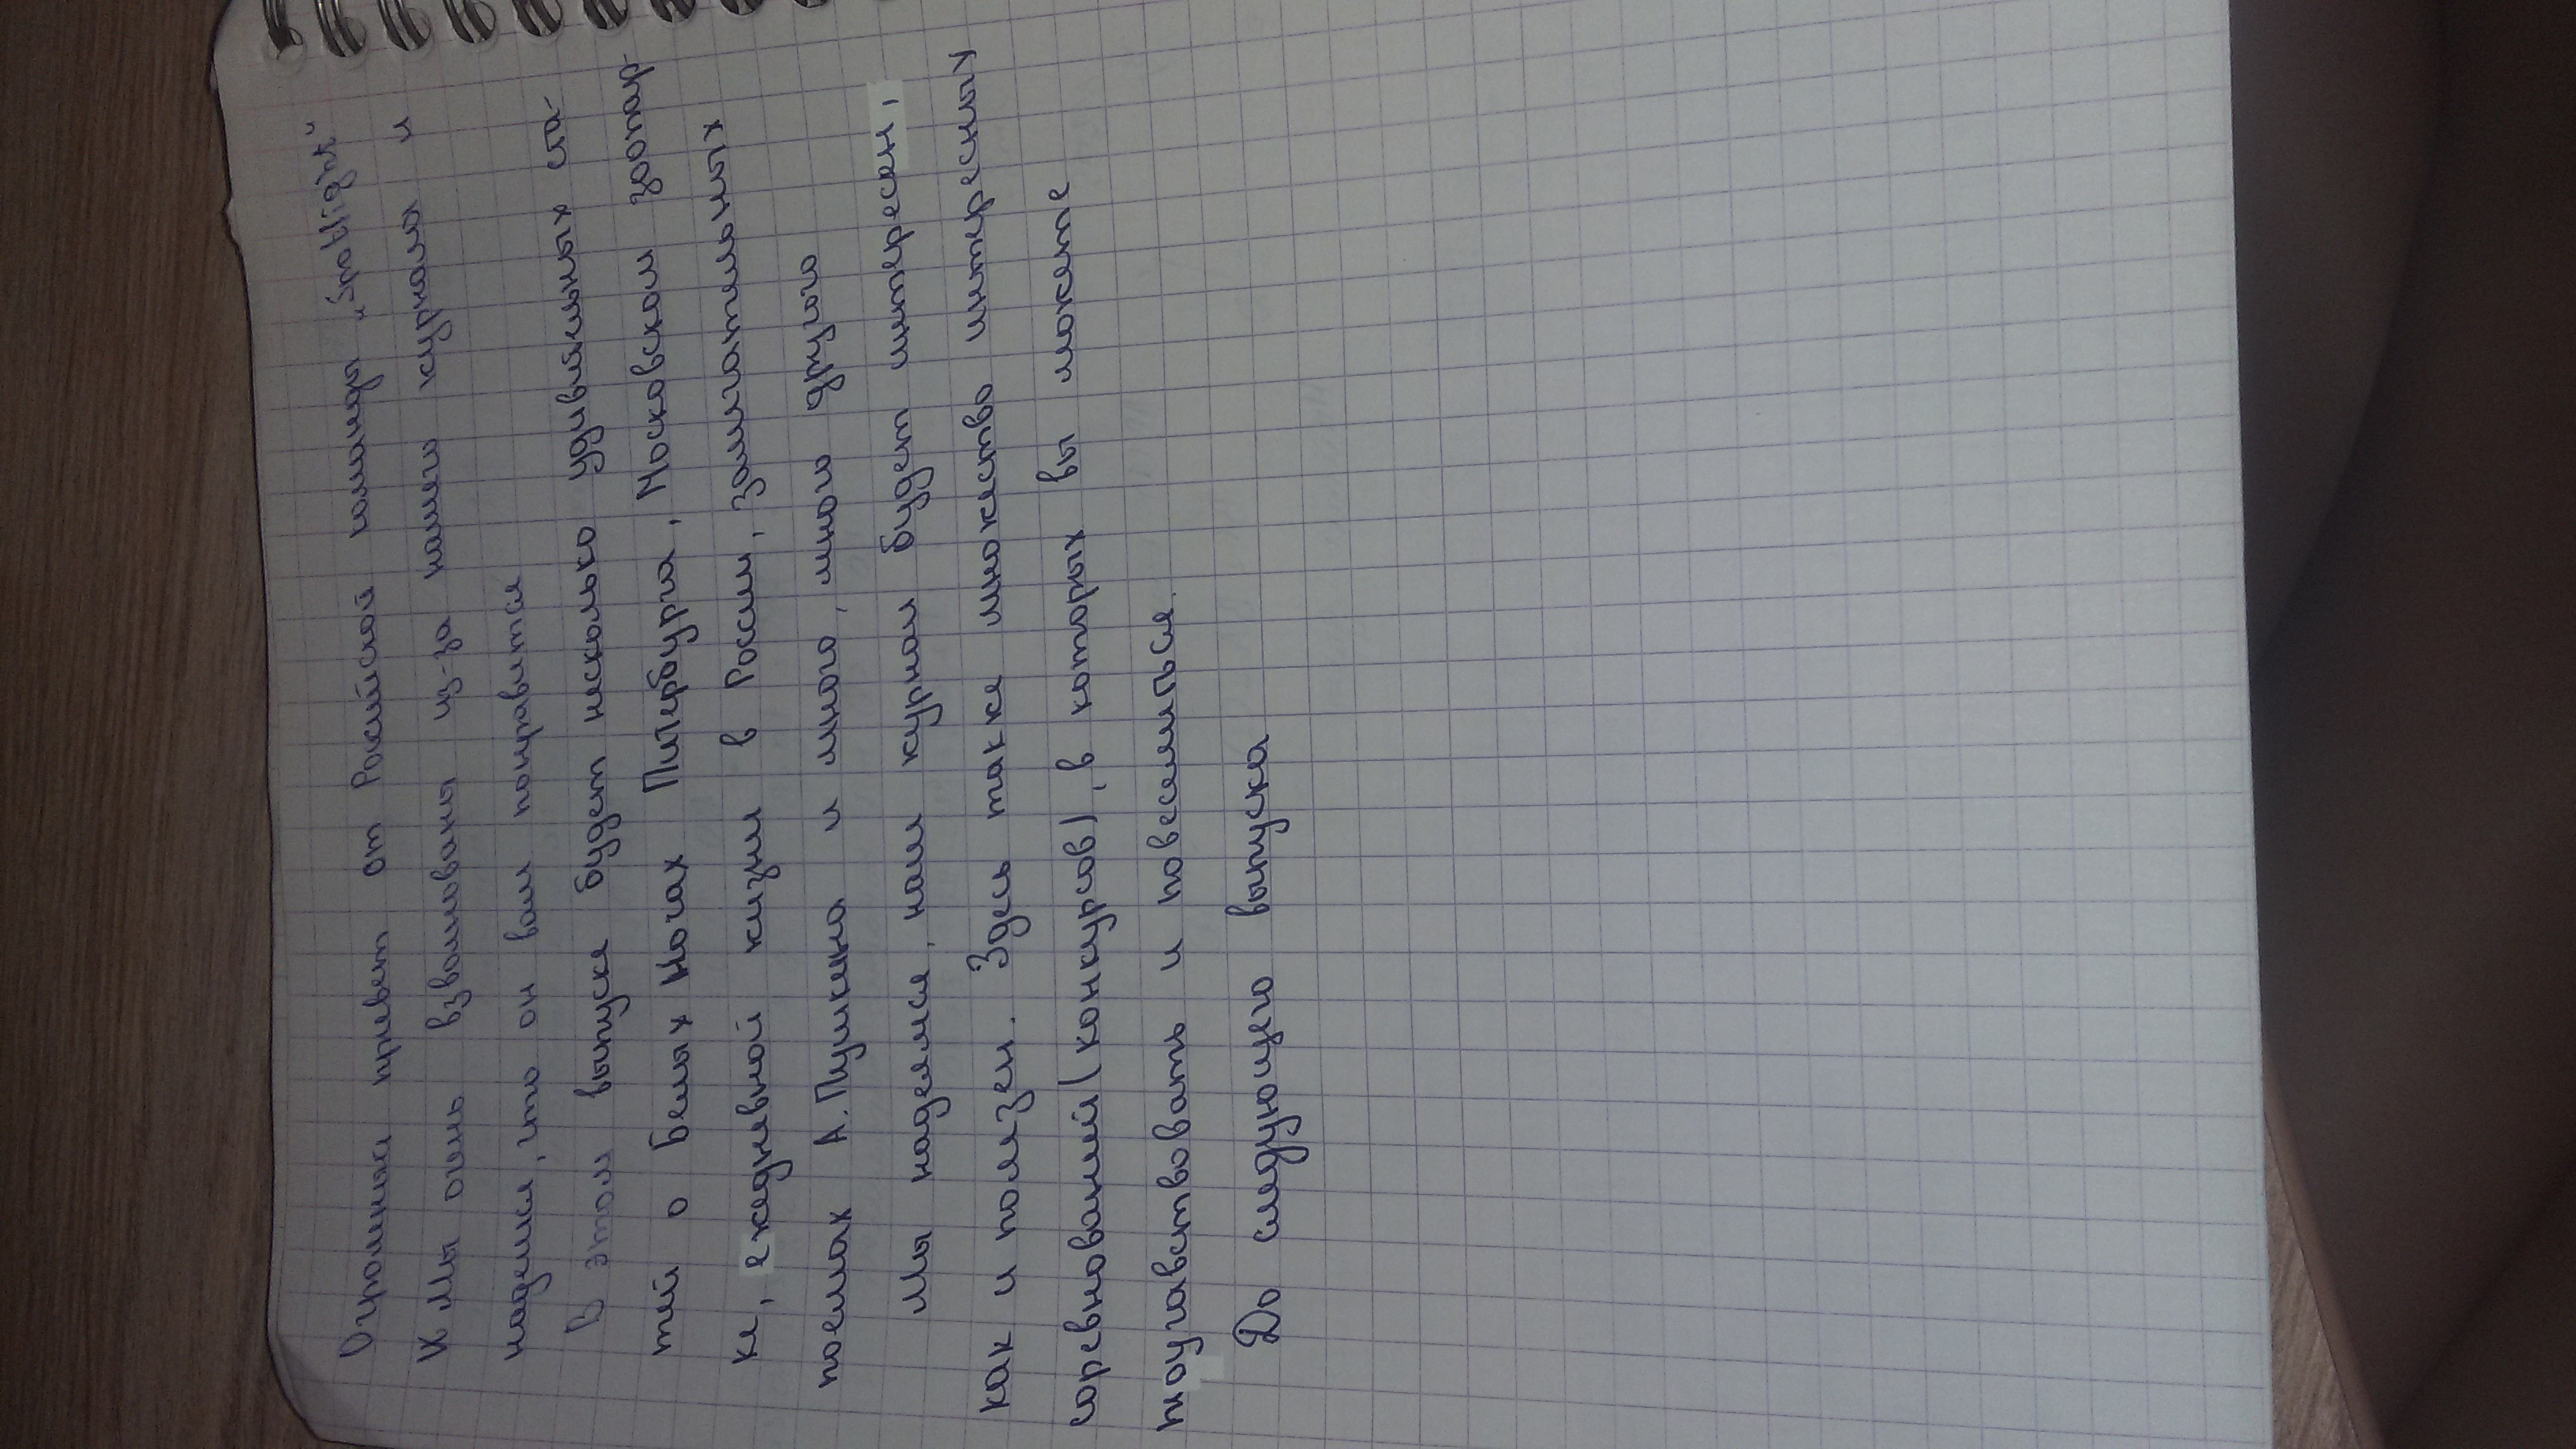 Огромный привет от Росийской команды „Spotlight"
И Мы очень взволнованы из-за нашего журнала и
надеемся, что он вам понравится
В этом выпуске будет несколько удивительных ста-
тей о Белых Ночах Питербурга, Московском зоопар-
ке, ежедневной жизни в России, замечательных
поемах А.Пушкина и много, много другого
Мы надеемся, наш журнал будет интересен,
как и полезен. Здесь также множество интересных
соревнований (конкурсов), в которых вы можете
поучавствовать и повеселиться.
До следующего выпуска